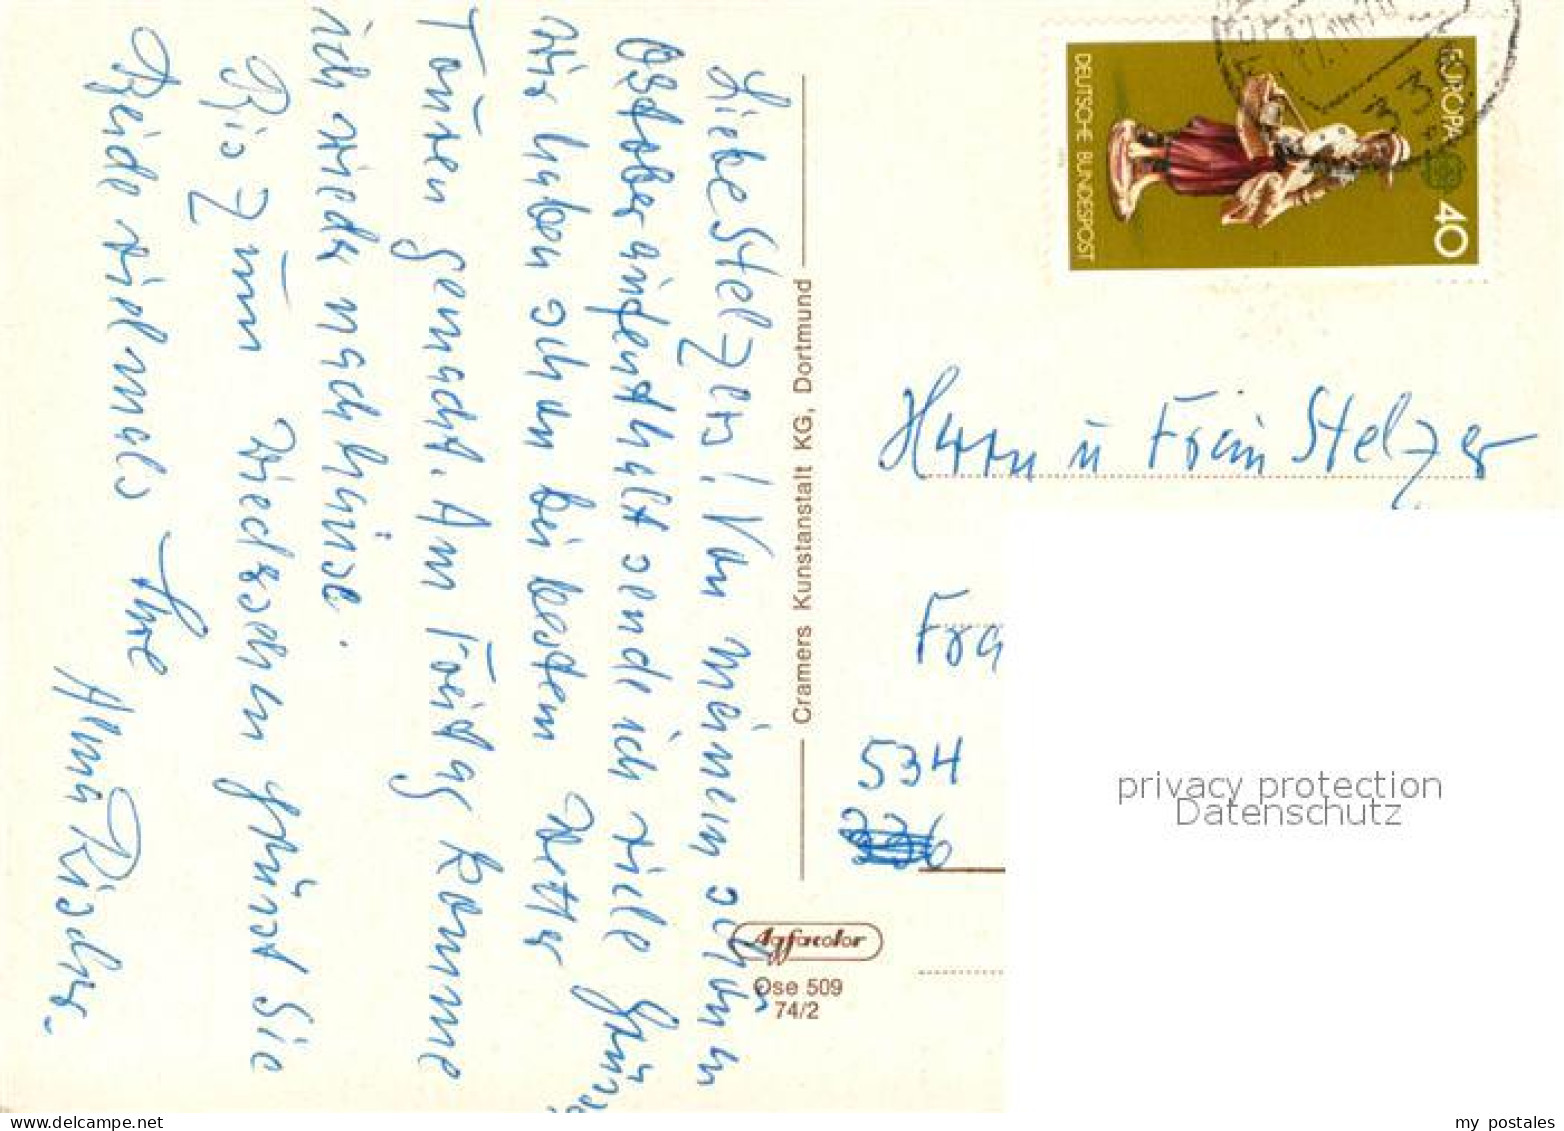 Liebe Stelzers! Von meinem schönen
Osteroder aufenthalt sende ich viele Grüsse
Wir haben schon bei bestem Wetter
Touren gemacht. Am Freitag komme
ich wieder nach hause.
Bis zum Wiedersehen grüsst Sie
Beide vielmals Ihre
Alma Rischer
Cramers Kunstanstalt KG, Dortmund
Agfacolor
Ose 509
74/2
EUROPA
40
DEUTSCHE BUNDESPOST
336
Herrn u Frau Stelzer
Fra
534
336
privacy protection
Datenschutz
my postales